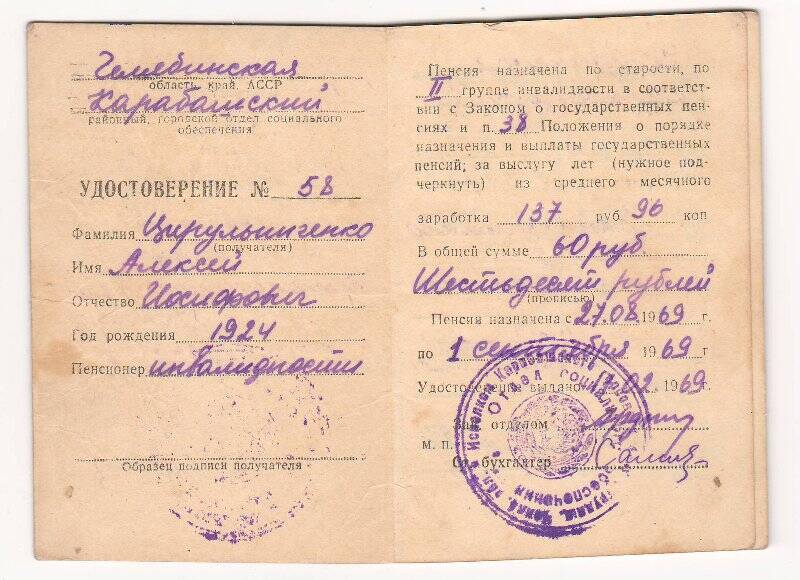 Челябинская
область, край, АССР
Карабашский
районный, городской отдел социального
обеспечения
УДОСТОВЕРЕНИЕ № 58
Фамилия Цирульниченко
(получателя)
Имя Алексей
Отчество Иосифович
Год рождения 1924
Пенсионер инвалидности
Образец подписи получателя
Пенсия назначена по старости, по
II группе инвалидности в соответст-
вии с Законом о государственных пен-
сиях и п. 38 Положения о порядке
назначения и выплаты государственных
пенсий; за выслугу лет (нужное под-
черкнуть) из среднего месячного
заработка 137 руб 96 коп
В общей сумме 60 руб.
Шестьдесят рублей
(прописью)
Пенсия назначена с 27.08 1969 г.
по 1 сентября 1969 г
Удостоверение выдано 02 1969
Зав отделом
М. П.
Ст. бухгалтер
Отдел социального обеспечения